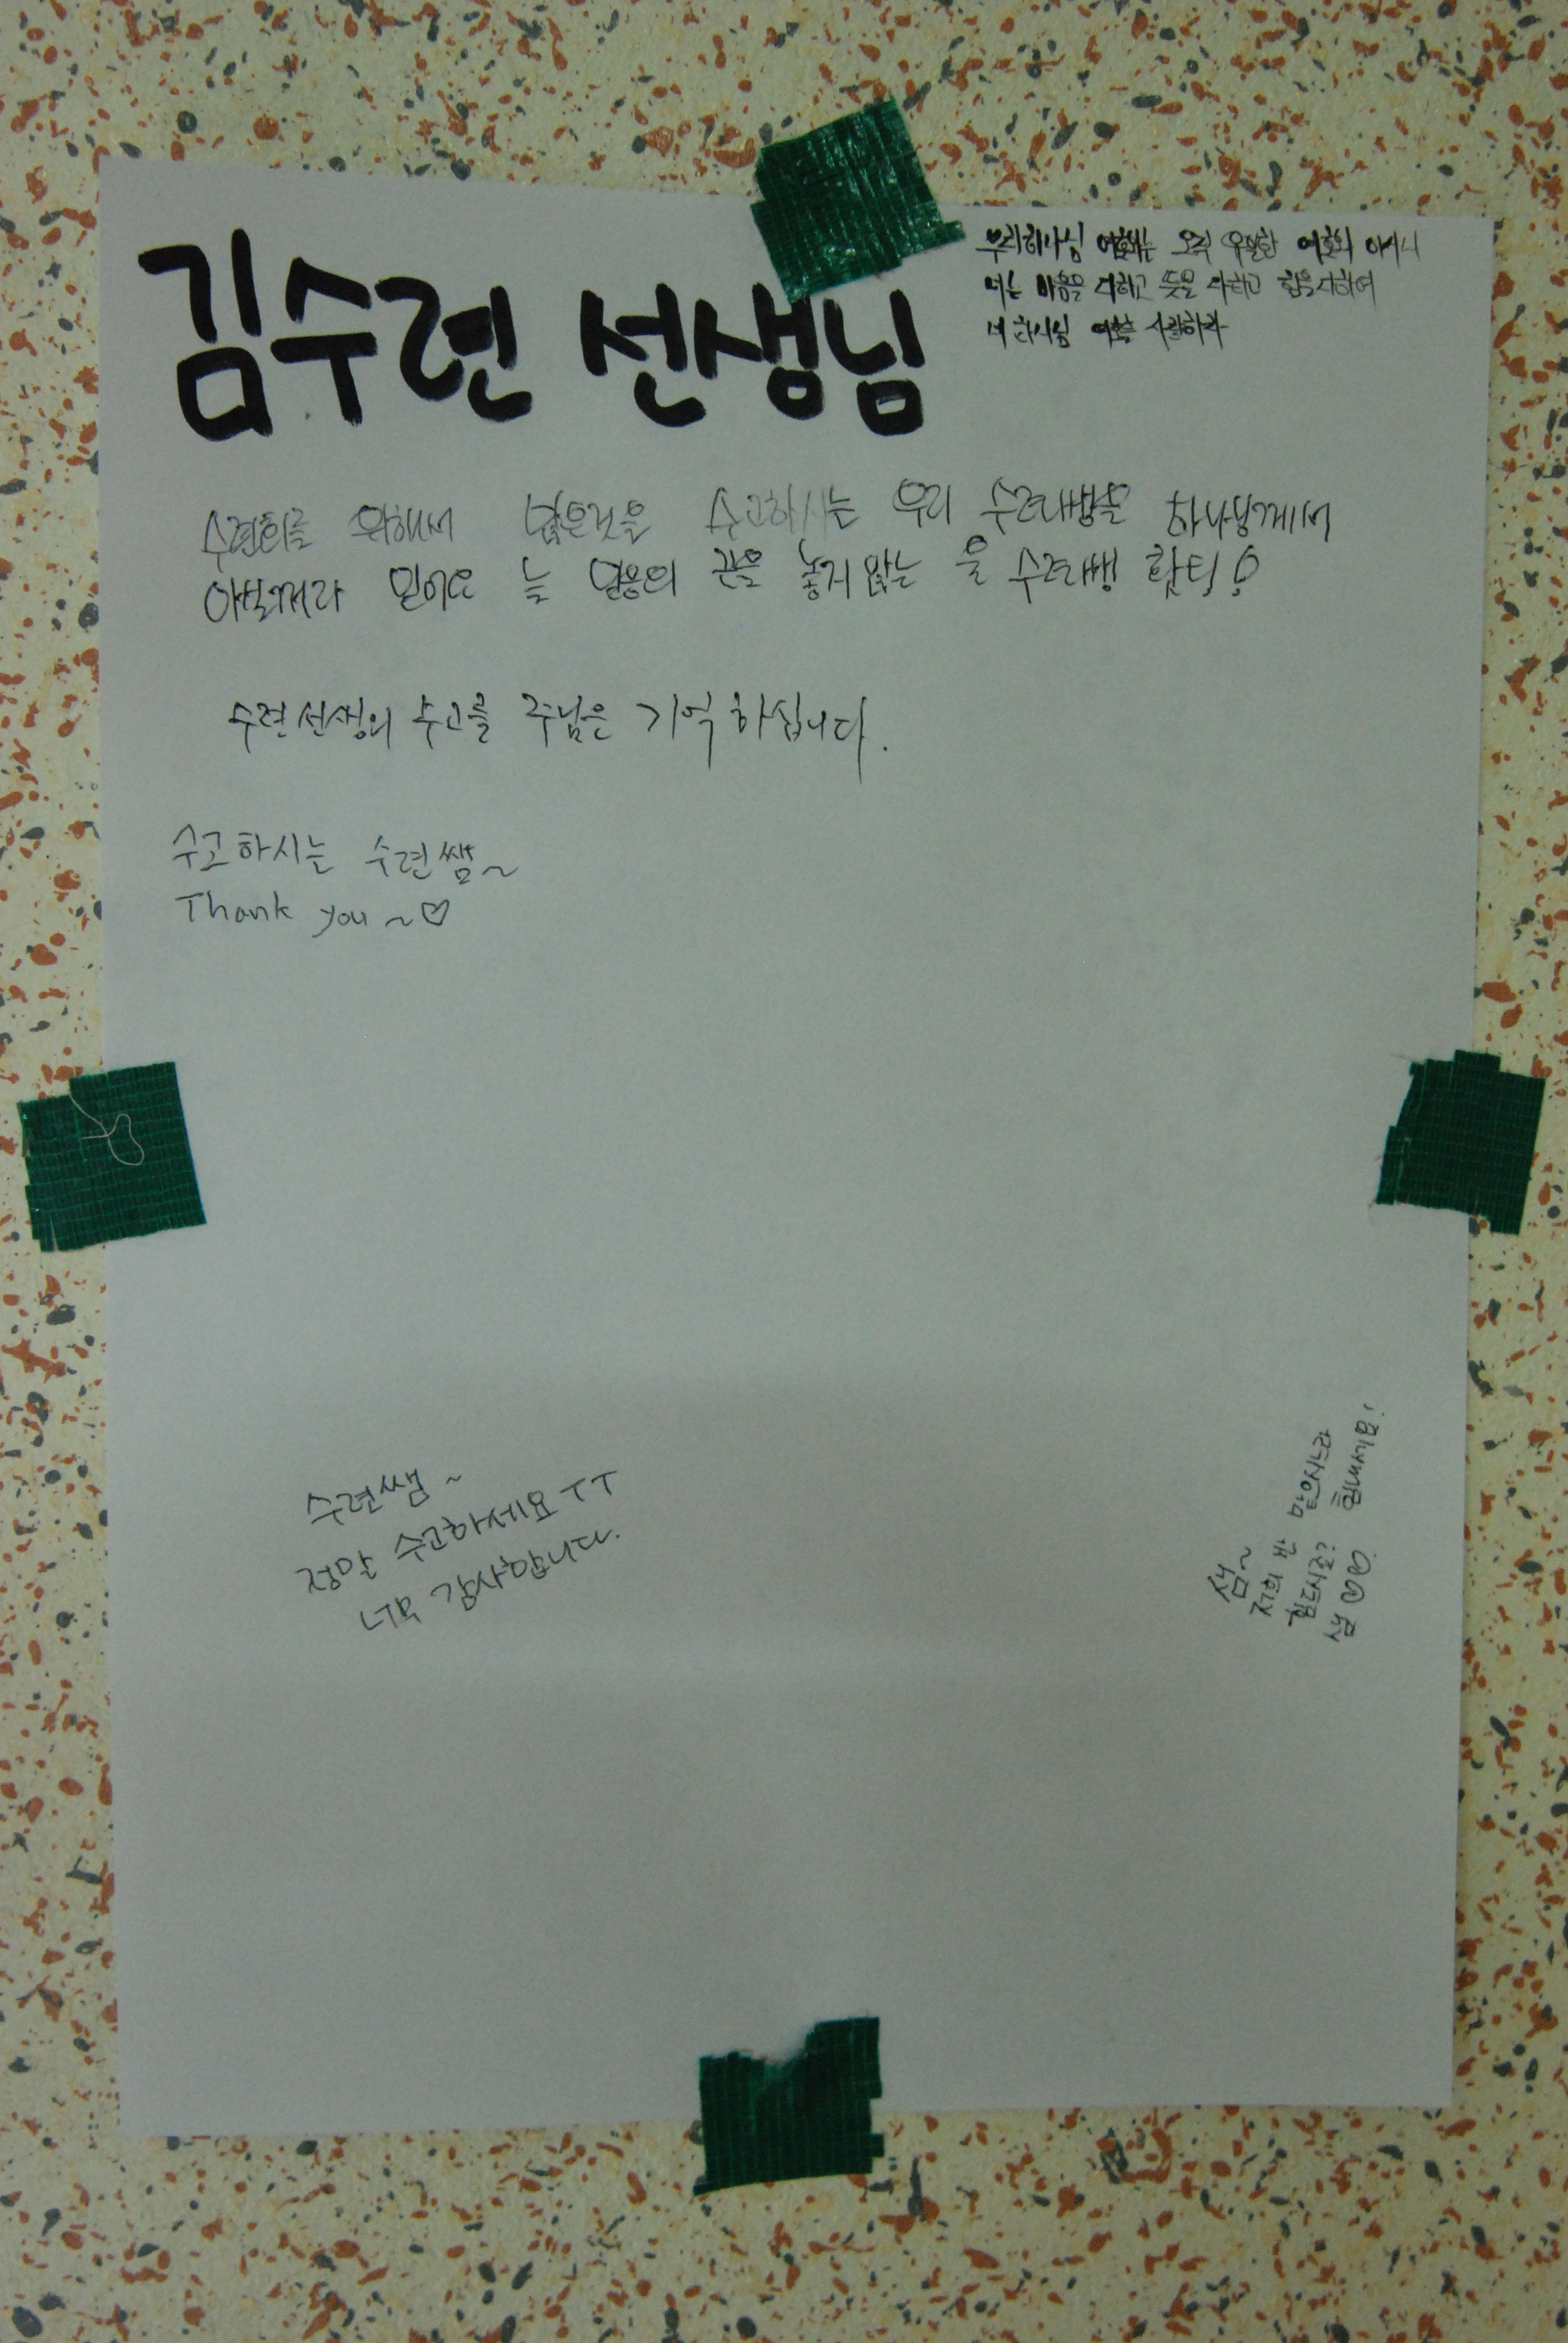 김수련 선생님
우리 하나님 여호와는 오직 유일한 여호와 이시니
너는 마음을 다하고 뜻을 다하고 힘을 다하여
네 하나님 여호와를 사랑하라
수련회를 위해서 많은것을 수고하시는 우리 수련쌤을 하나님께서
아실꺼라 믿어요 늘 믿음의 끈을 놓지않는 울 수련쌤 홧팅!
수련선생의 수고를 주님은 기억하십니다.
수고하시는 수련쌤~
Thank you~♡
수련쌤~
정말 수고하세요 TT
너무 감사합니다.